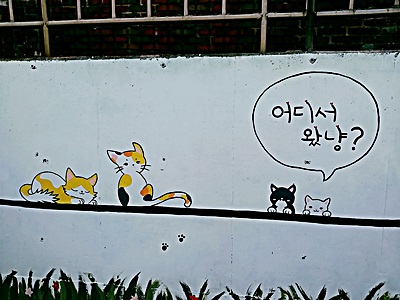 어디서
왔냥?